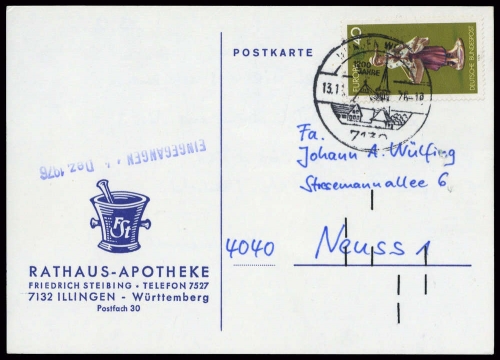 POSTKARTE
40
EUROPA
DEUTSCHE BUNDESPOST
1200
JAHRE
13.1
76-18
713
EINGEGANGEN
Dez. 1976
FSt
RATHAUS-APOTHEKE
FRIEDRICH STEIBING • TELEFON 7527
7132 ILLINGEN - Württemberg
Postfach 30
Fa.
Johann A. Wülfing
Stresemannallee 6
4040 Neuss 1